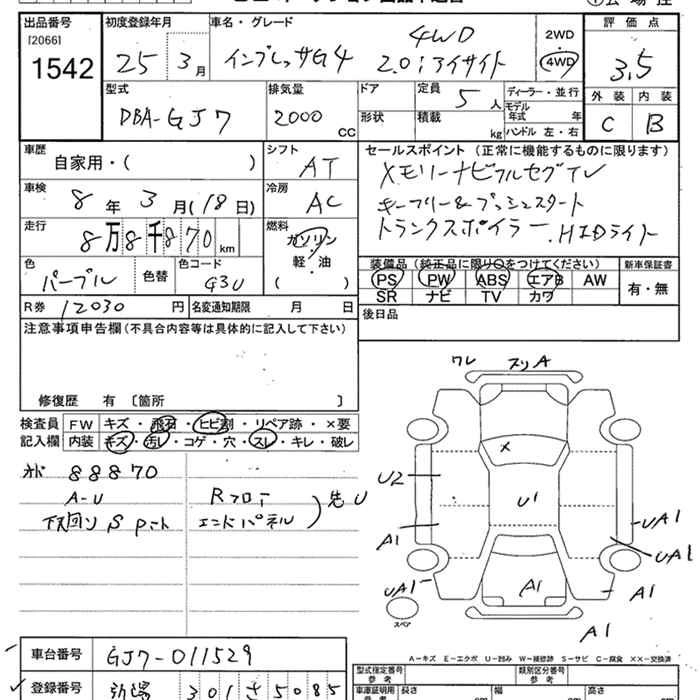 出品番号 初度登録年月 車名・グレード 評価点
[2066] 1542
25年 3月 インプレッサG4 4WD 2.0i アイサイト
2WD
4WD
3.5
外装 内装
C B
型式 排気量 ドア 定員 ディーラー・並行
DBA-GJ7 2000 CC 5人
形状 積載 kg
モデル年式 年
ハンドル 左・右
車歴 シフト セールスポイント (正常に機能するものに限ります)
自家用・( ) AT
メモリーナビフルセグTV
キーフリー&プッシュスタート
トランクスポイラー.HIDライト
車検 冷房
8年 3月(18日) AC
走行 燃料
8万8千870km ガソリン
軽・油
( )
色 色替 色コード
パープル G3U
装備品 (純正品に限り○をつけてください) 新車保証書
PS PW ABS エアB AW 有・無
SR ナビ TV カワ
R券 12030円 名変通知期限 月 日
後日品
注意事項申告欄(不具合内容等は具体的に記入して下さい)
修復歴 有 〔箇所 〕
検査員 FW キズ・飛石・ヒビ割・リペア跡・×要
記入欄 内装 キズ・汚レ・コゲ・穴・スレ・キレ・破レ
88870
A-U
下廻りSPート
Rフロア
エンドパネル
先U
ワレ スリA
X
U2
U1
A1
UA1
UA1
A1
UA1
A1
A1
スペア
A1
A-キズ E-エクボ U-凹み W-補修跡 S-サビ C-腐食 XX-交換済
車台番号 GJ7-011529
登録番号 301 さ 5085
型式指定番号 参考 類別区分番号 参考
車庫証明用 参考 長さ cm 幅 cm 高さ cm